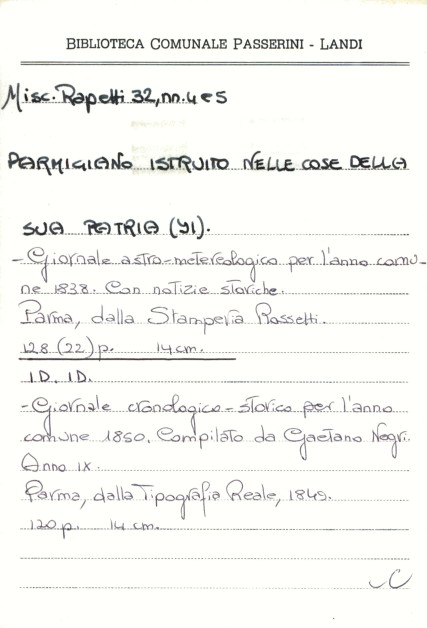 BIBLIOTECA COMUNALE PASSERINI - LANDI
Misc. Rapetti 32, nn. 4 e 5
PARMIGIANO ISTRUITO NELLE COSE DELLA
SUA PATRIA (Il).
- Giornale astro-metereologico per l'anno comu-
ne 1838. Con notizie storiche.
Parma, dalla Stamperia Rossetti.
128 (22) p. 14 cm.
ID. ID.
- Giornale cronologico-storico per l'anno
comune 1850. Compilato da Gaetano Negri.
Anno IX.
Parma, dalla Tipografia Reale, 1849.
120 p. 14 cm.